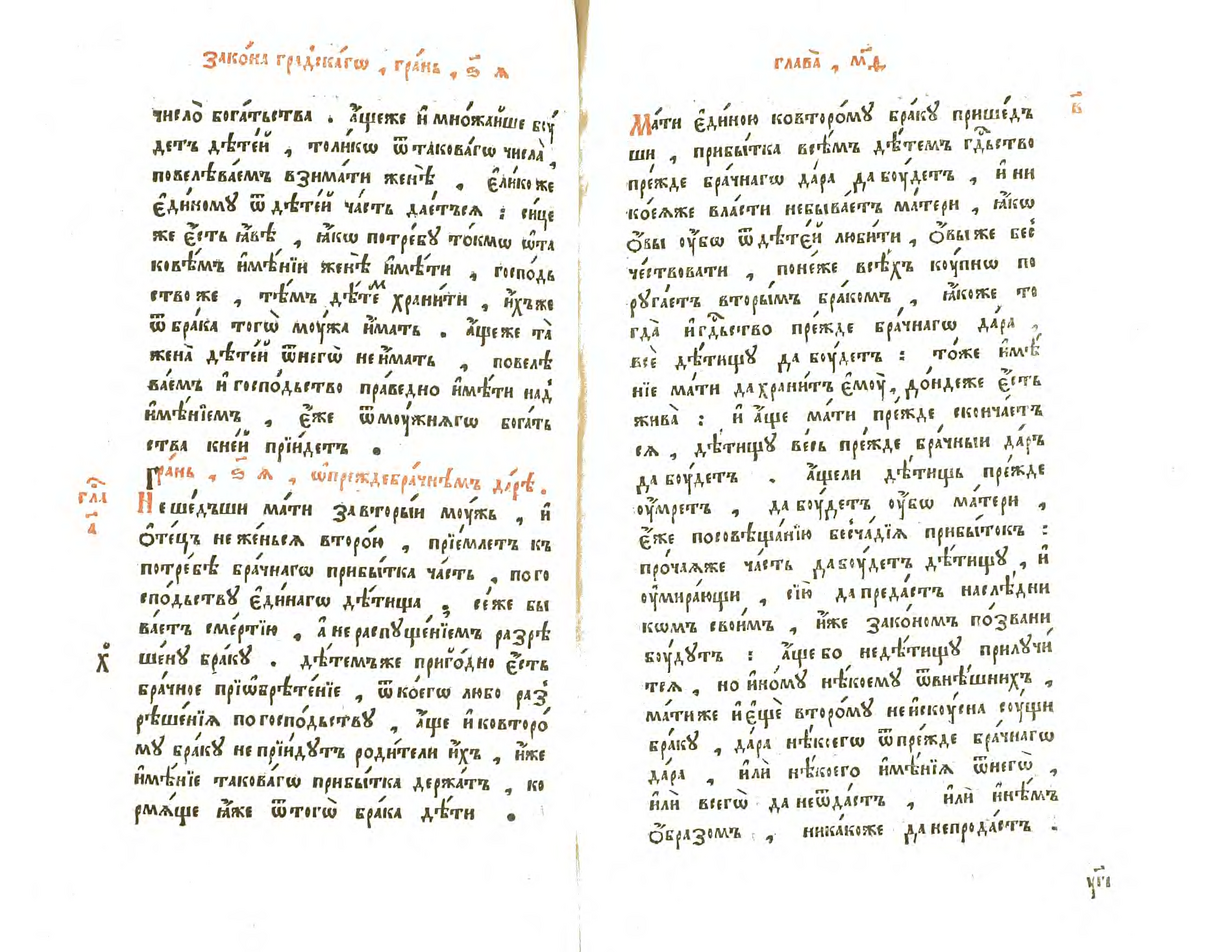 Зако́на гра́дскагѡ , гра́нь , ѕ҃ ѧ
число̀ бога́тьства . а҆́щеже и҆ мно́жайше бꙋ́
детъ дѣте́й , толи́кѡ ѿ такова́гѡ числа̀ ,
повелѣва́емъ взима́ти женѣ̀ , є҆ли́ко же
є҆ди́номꙋ ѿ дѣте́й ча́сть дае́тъсѧ : си́це
же є҆́сть ꙗ҆́вѣ , ꙗ҆́кѡ потре́бꙋ то́кмѡ ѡ҆ та
ковѣ́мъ и҆мѣ́нїи женѣ̀ и҆мѣ́ти , госпо́дь
ство же , тѣ́мъ дѣ́теⷨ храни́ти , и҆́хъ же
ѿ бра́ка тогѡ̀ мꙋ́жа и҆́мать . а҆́ще же та̀
жена̀ дѣте́й ѿ негѡ̀ не и҆́мать , повелѣ
ва́емъ и҆ госпо́дьство пра́ведно и҆мѣ́ти наⷣ
и҆мѣ́нїемъ , є҆́же ѿ мꙋ́жнѧгѡ бога́ть
ства к не́й прїи́детъ .
Гра́нь , ѕ҃ ѧ , ѡ҆ преждебра́чнѣмъ да́рѣ .
гла̀
а҃
Не ше́дъши ма́ти за вторы́й мꙋ́жь , и҆
ѻ҆те́цъ не же́ньсѧ второ́ю , прїе́млетъ къ
потре́бѣ бра́чнагѡ прибы́тка ча́сть , по го
спо́дьствꙋ є҆ди́нагѡ дѣ́тища , се́ же бы
ва́етъ сме́ртїю , а҆ не распꙋще́нїемъ разрѣ
ше́нꙋ бра́кꙋ . дѣ́темъ же приго́дно є҆́сть
бра́чное прїѡбрѣте́нїе , ѿ ко́егѡ любо раз̾
рѣше́нїѧ по госпо́дьствꙋ , а҆́ще и҆ ко второ́
мꙋ бра́кꙋ не прїи́дꙋтъ роди́тели и҆́хъ , и҆́же
и҆мѣ́нїе такова́гѡ прибы́тка держа́тъ , ко
рмѧ́ще ꙗ҆́же ѿ тогѡ̀ бра́ка дѣ́ти .
глава̀ , м҃д ,
в҃
Ма́ти є҆ди́ною ко второ́мꙋ бра́кꙋ прише́дъ
ши , прибы́тка всѣ́мъ дѣ́темъ гдⷭ҇ьство
пре́жде бра́чнагѡ да́ра да бꙋ́детъ , и҆ ни
кое́ѧже вла́сти не быва́етъ ма́тери , ꙗ҆́кѡ
ѻ҆́вы ᲂу҆́бѡ ѿ дѣте́й люби́ти , ѻ҆́вы же беⷥ
че́ствовати , поне́же всѣ́хъ кꙋ́пнѡ по
рꙋга́етъ вторы́мъ бра́комъ , ꙗ҆́коже то
гда̀ и҆ гдⷭ҇ьство пре́жде бра́чнагѡ да́ра ,
всѐ дѣ́тищꙋ да бꙋ́детъ : то́же и҆мѣ́
нїе ма́ти да храни́тъ є҆мꙋ̀ , до́ндеже є҆́сть
жива̀ : и҆ а҆́ще ма́ти пре́жде сконча́етъ
сѧ , дѣ́тищꙋ ве́сь пре́жде бра́чный да́ръ
да бꙋ́детъ . а҆́щели дѣ́тищь пре́жде
ᲂу҆́мретъ , да бꙋ́детъ ᲂу҆́бѡ ма́тери ,
є҆́же по совѣща́нїю бесча́дїѧ прибы́токъ :
про́чаѧже ча́сть да бꙋ́детъ дѣ́тищꙋ , и҆
ᲂу҆мира́ющи , сїю̀ да преда́стъ наслѣ́дни
кѡмъ свои̑мъ , и҆́же зако́номъ по́звани
бꙋ́дꙋтъ : а҆́ще бо не дѣ́тищꙋ прилꙋчи́
тсѧ , но и҆но́мꙋ нѣ́коемꙋ ѿ внѣ́шнихъ ,
ма́ти же и҆ є҆щѐ второ́мꙋ не и҆скꙋ́сна сꙋ́щи
бра́кꙋ , да́ра нѣ́коегѡ ѿ пре́жде бра́чнагѡ
да́ра , и҆лѝ нѣ́коего и҆мѣ́нїѧ ѿ негѡ̀ ,
и҆лѝ всегѡ̀ да не ѿда́стъ , и҆лѝ и҆нѣ́мъ
ѻ҆́бразомъ , ника́коже да не прода́стъ .